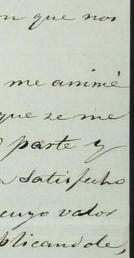 n que nos
me animé
que se me
parte y
satisfecho
cuyo valor
plicandole,